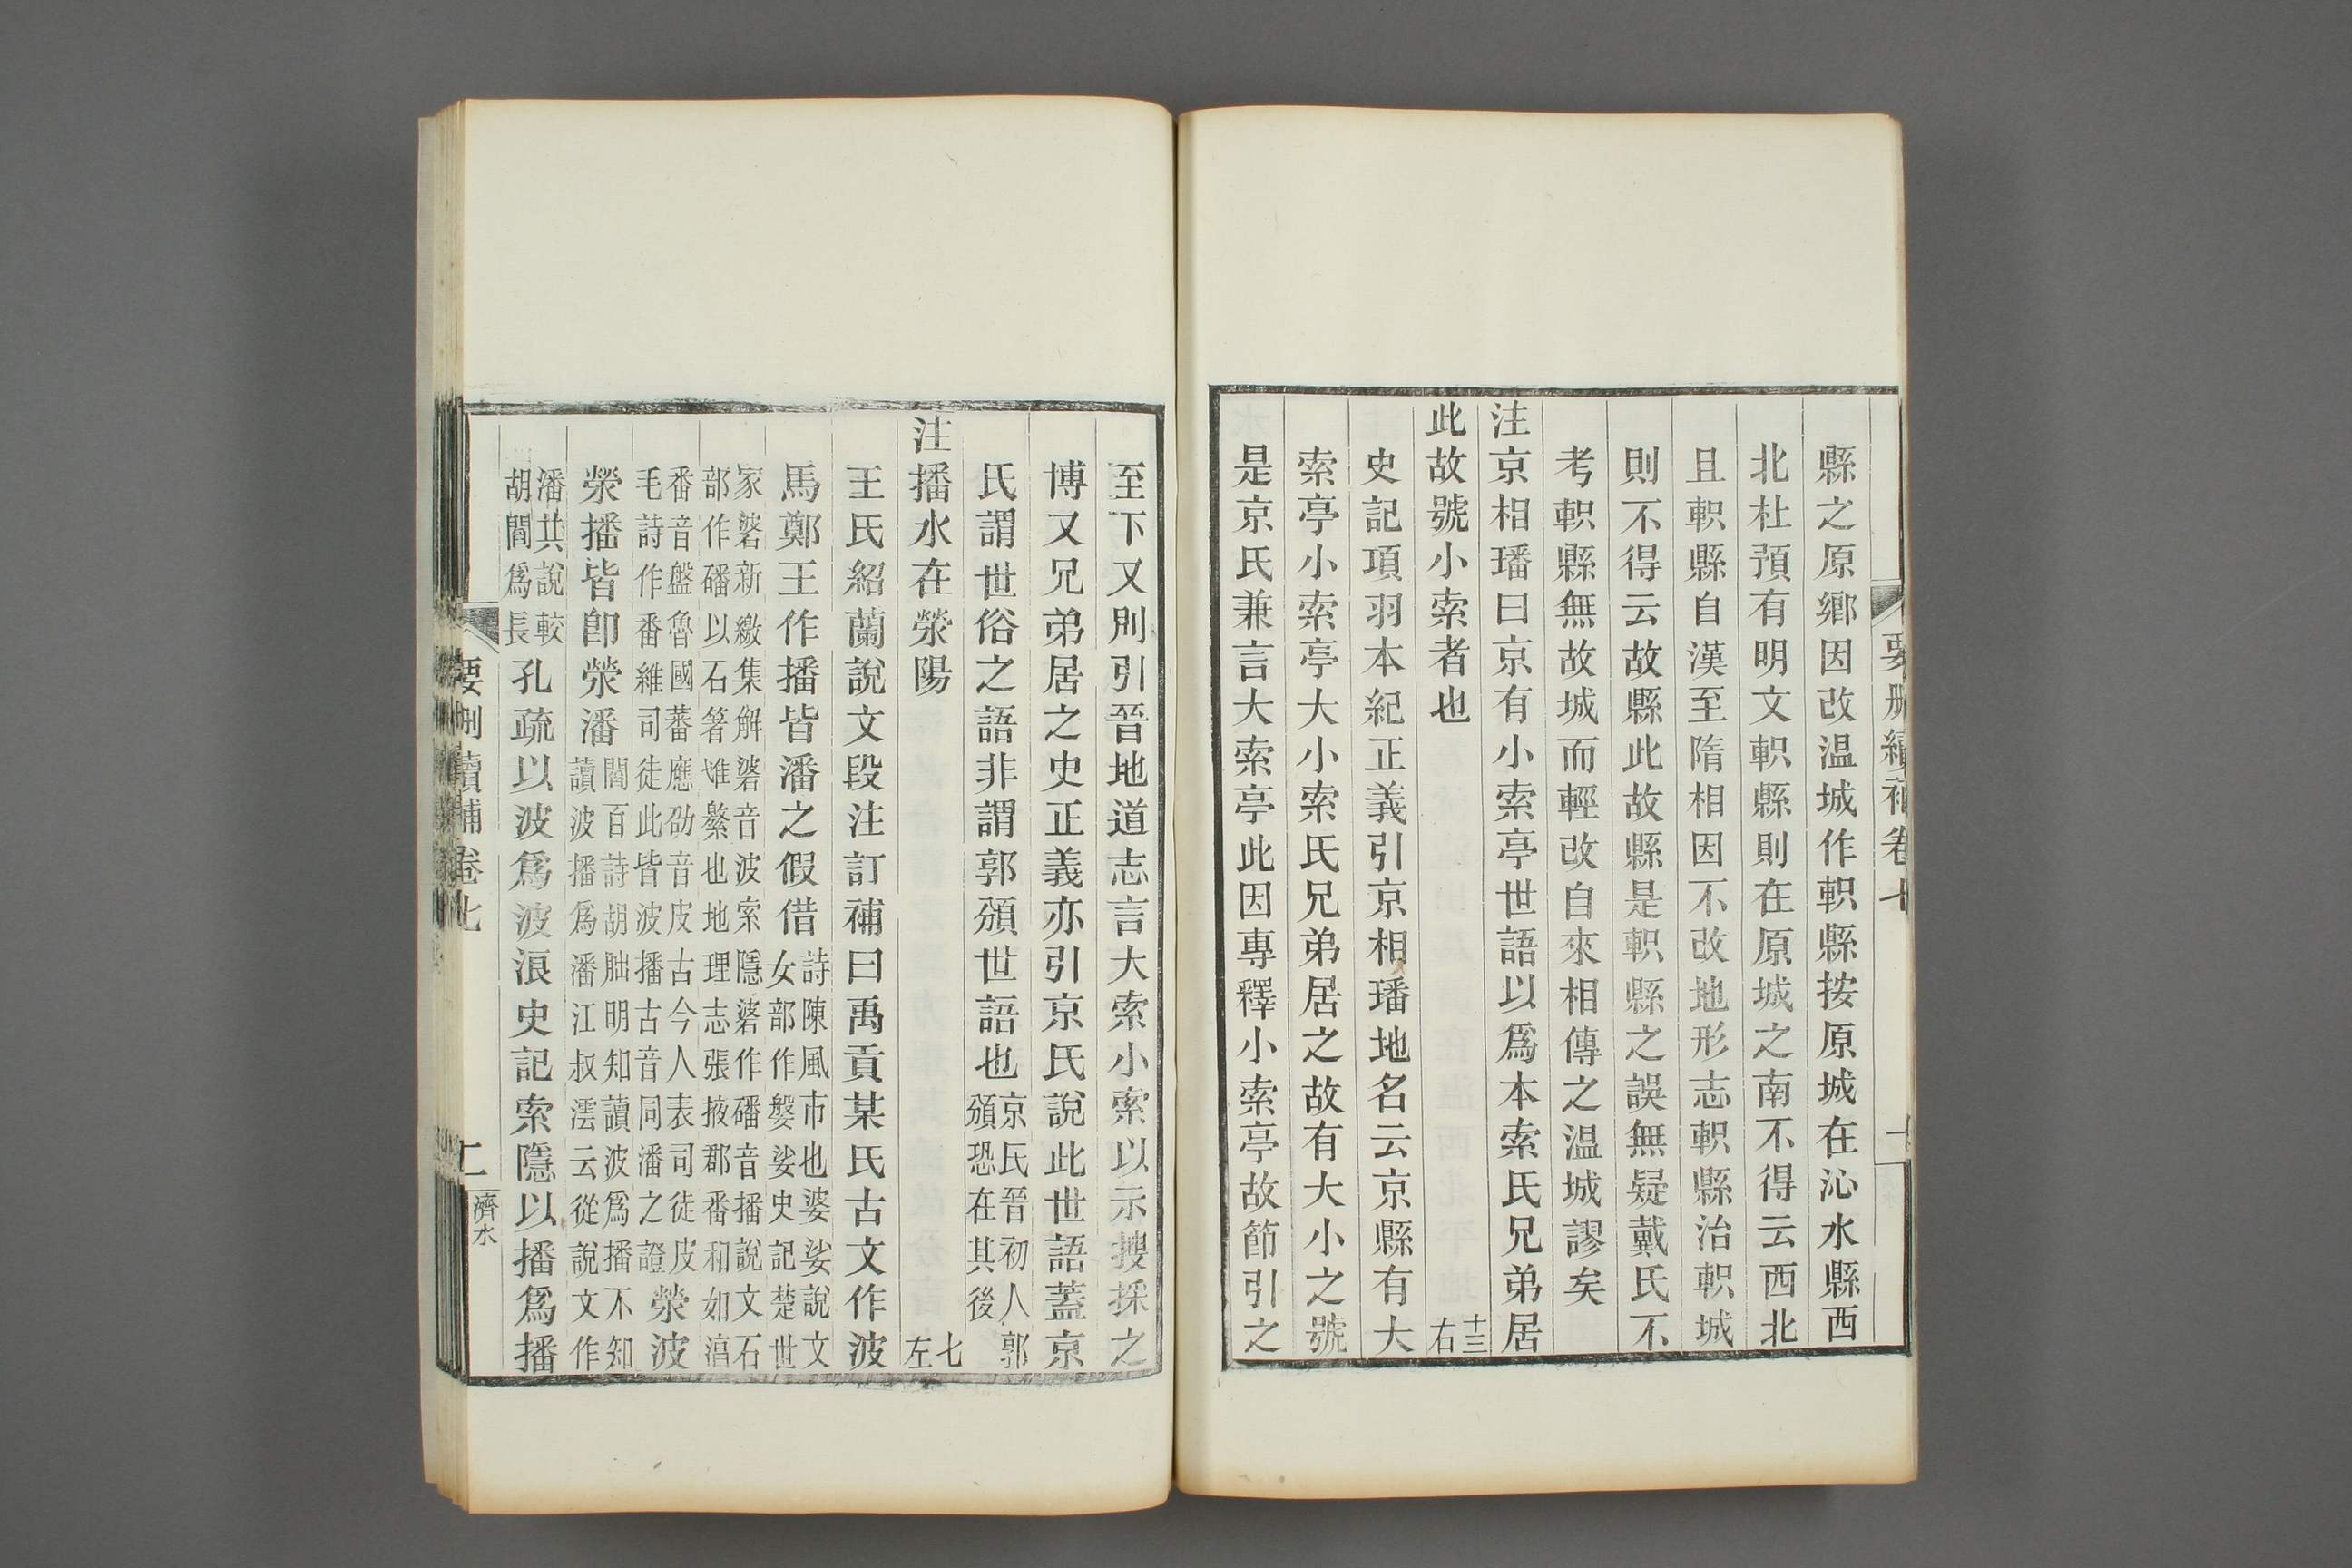 縣之原鄉因改温城作軹縣按原城在沁水縣西
北杜預有明文軹縣則在原城之南不得云西北
且軹縣自漢至隋相因不改地形志軹縣治軹城
則不得云故縣此故縣是軹縣之誤無疑戴氏不
考軹縣無故城而輕改自來相傳之温城謬矣
注京相璠曰京有小索亭世語以爲本索氏兄弟居
此故號小索者也 十三右
史記項羽本紀正義引京相璠地名云京縣有大
索亭小索亭大小索氏兄弟居之故有大小之號
是京氏兼言大索亭此因專釋小索亭故節引之
至下又則引晉地道志言大索小索以示搜採之
博又兄弟居之史正義亦引京氏說此世語蓋京
氏謂世俗之語非謂郭頒世語也京氏晉初人郭頒恐在其後
注播水在滎陽 七左
王氏紹蘭說文段注訂補曰禹貢某氏古文作波
馬鄭王作播皆潘之假借詩陳風市也婆娑說文女部作媻娑史記楚世
家碆新繳集解碆音波索隱碆作磻音播說文石部作磻以石箸隿繁也地理志張掖郡番和如湻
番音盤魯國蕃應劭音皮古今人表司徒皮毛詩作番維司徒此皆波播古音同潘之證滎波
滎播皆卽滎潘閻百詩胡朏明知讀波爲播不知讀波播爲潘江叔澐云從說文作
潘共說較胡閻爲長孔疏以波爲波浪史記索隱以播爲播
要刪續補卷七
二
濟水